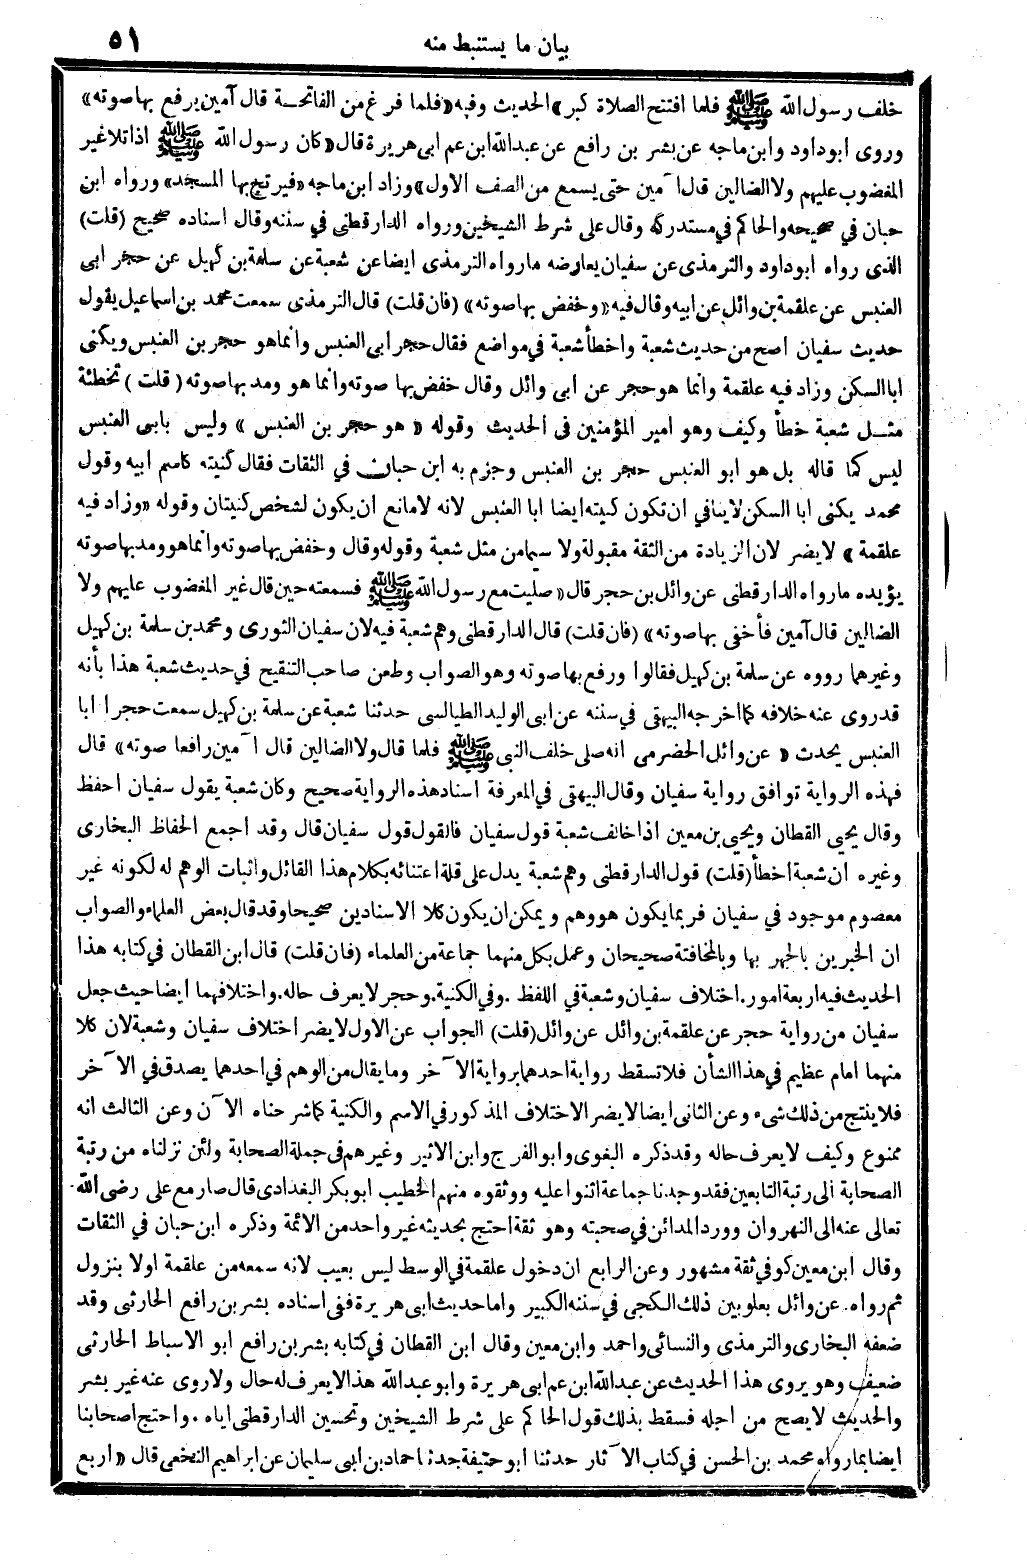 بيان ما يستنبط منه ٥١
خلف رسول الله ﷺ فلما افتتح الصلاة كبر» الحديث وفيه «فلما فرغ من الفاتحة قال آمين يرفع بها صوته»
وروى ابوداود وابن ماجه عن بشر بن رافع عن عبدالله ابن عم ابى هريرة قال «كان رسول الله ﷺ اذا تلا غير
المغضوب عليهم ولا الضالين قال آمين حتى يسمع من الصف الاول» وزاد ابن ماجه «فيرتج بها المسجد» ورواه ابن
حبان في صحيحه والحاكم في مستدركه وقال على شرط الشيخين ورواه الدارقطنى في سننه وقال اسناده صحيح (قلت)
الذى رواه ابوداود والترمذى عن سفيان يعارضه مارواه الترمذى ايضا عن شعبة عن سلمة بن كهيل عن حجر ابى
العنبس عن علقمة بن وائل عن ابيه وقال فيه «وخفض بها صوته» (فان قلت) قال الترمذى سمعت محمد بن اسماعيل يقول
حديث سفيان اصح من حديث شعبة واخطأ شعبة في مواضع فقال حجر ابى العنبس وانما هو حجر بن العنبس ويكنى
ابا السكن وزاد فيه علقمة وانما هو حجر عن ابى وائل وقال خفض بها صوته وانما هو ومد بها صوته (قلت) تخطئة
مثل شعبة خطأ وكيف وهو امير المؤمنين فى الحديث وقوله «هو حجر بن العنبس» وليس بابى العنبس
ليس كما قاله بل هو ابو العنبس حجر بن العنبس وجزم به ابن حبان في الثقات فقال كنيته كاسم ابيه وقول
محمد يكنى ابا السكن لاينافي ان تكون كنيته ايضا ابا العنبس لانه لامانع ان يكون لشخص كنيتان وقوله «وزاد فيه
علقمة» لايضر لان الزيادة من الثقة مقبولة ولا سيما من مثل شعبة وقوله وقال وخفض بها صوته وانما هو ومد بها صوته
يؤيده مارواه الدارقطنى عن وائل بن حجر قال «صليت مع رسول الله ﷺ فسمعته حين قال غير المغضوب عليهم ولا
الضالين قال آمين فأخفى بها صوته» (فان قلت) قال الدارقطنى وهم شعبة فيه لان سفيان الثورى ومحمد بن سلمة بن كهيل
وغيرهما رووه عن سلمة بن كهيل فقالوا ورفع بها صوته وهو الصواب وطعن صاحب التنقيح في حديث شعبة هذا بأنه
قد روى عنه خلافه كما اخرجه البيهقى في سننه عن ابى الوليد الطيالسى حدثنا شعبة عن سلمة بن كهيل سمعت حجرا ابا
العنبس يحدث «عن وائل الحضرمى انه صلى خلف النبى ﷺ فلما قال ولا الضالين قال آمين رافعا صوته» قال
فهذه الرواية توافق رواية سفيان وقال البيهقى في المعرفة اسناد هذه الرواية صحيح وكان شعبة يقول سفيان احفظ
وقال يحيى القطان ويحيى بن معين اذا خالف شعبة قول سفيان فالقول قول سفيان قال وقد اجمع الحفاظ البخارى
وغيره ان شعبة اخطأ (قلت) قول الدارقطنى وهم شعبة يدل على قلة اعتنائه بكلام هذا القائل واثبات الوهم له لكونه غير
معصوم موجود في سفيان فربما يكون هو وهم ويمكن ان يكون كلا الاسنادين صحيحا وقد قال بعض العلماء والصواب
ان الخبرين بالجهر بها وبالمخافتة صحيحان وعمل بكل منهما جماعة من العلماء (فان قلت) قال ابن القطان في كتابه هذا
الحديث فيه اربعة امور. اختلاف سفيان وشعبة في اللفظ. وفي الكنية. وحجر لايعرف حاله. واختلافهما ايضا حيث جعل
سفيان من رواية حجر عن علقمة بن وائل عن وائل (قلت) الجواب عن الاول لايضر اختلاف سفيان وشعبة لان كلا
منهما امام عظيم في هذا الشأن فلا تسقط رواية احدهما برواية الآخر ومايقال من الوهم في احدهما يصدق في الآخر
فلا ينتج من ذلك شىء وعن الثانى ايضا لا يضر الاختلاف المذكور في الاسم والكنية كما شرحناه الآن وعن الثالث انه
ممنوع وكيف لايعرف حاله وقد ذكره البغوى وابو الفرج وابن الاثير وغيرهم فى جملة الصحابة ولئن نزلناه من رتبة
الصحابة الى رتبة التابعين فقد وجدنا جماعة اثنوا عليه ووثقوه منهم الخطيب ابوبكر البغدادى قال صار مع على رضى الله
تعالى عنه الى النهروان وورد المدائن في صحبته وهو ثقة احتج بحديثه غير واحد من الائمة وذكره ابن حبان في الثقات
وقال ابن معين كوفي ثقة مشهور وعن الرابع ان دخول علقمة في الوسط ليس بعيب لانه سمعه من علقمة اولا بنزول
ثم رواه. عن وائل بعلو بين ذلك الكجى في سننه الكبير واما حديث ابى هريرة ففى اسناده بشر بن رافع الحارثى وقد
ضعفه البخارى والترمذى والنسائى واحمد وابن معين وقال ابن القطان في كتابه بشر بن رافع ابو الاسباط الحارثى
ضعيف وهو يروى هذا الحديث عن عبدالله ابن عم ابى هريرة وابو عبدالله هذا لايعرف له حال ولا روى عنه غير بشر
والحديث لايصح من اجله فسقط بذلك قول الحاكم على شرط الشيخين وتحسين الدارقطنى اياه. واحتج اصحابنا
ايضا بما رواه محمد بن الحسن في كتاب الآثار حدثنا ابو حنيفة حدثنا حماد بن ابى سليمان عن ابراهيم النخعى قال «اربع